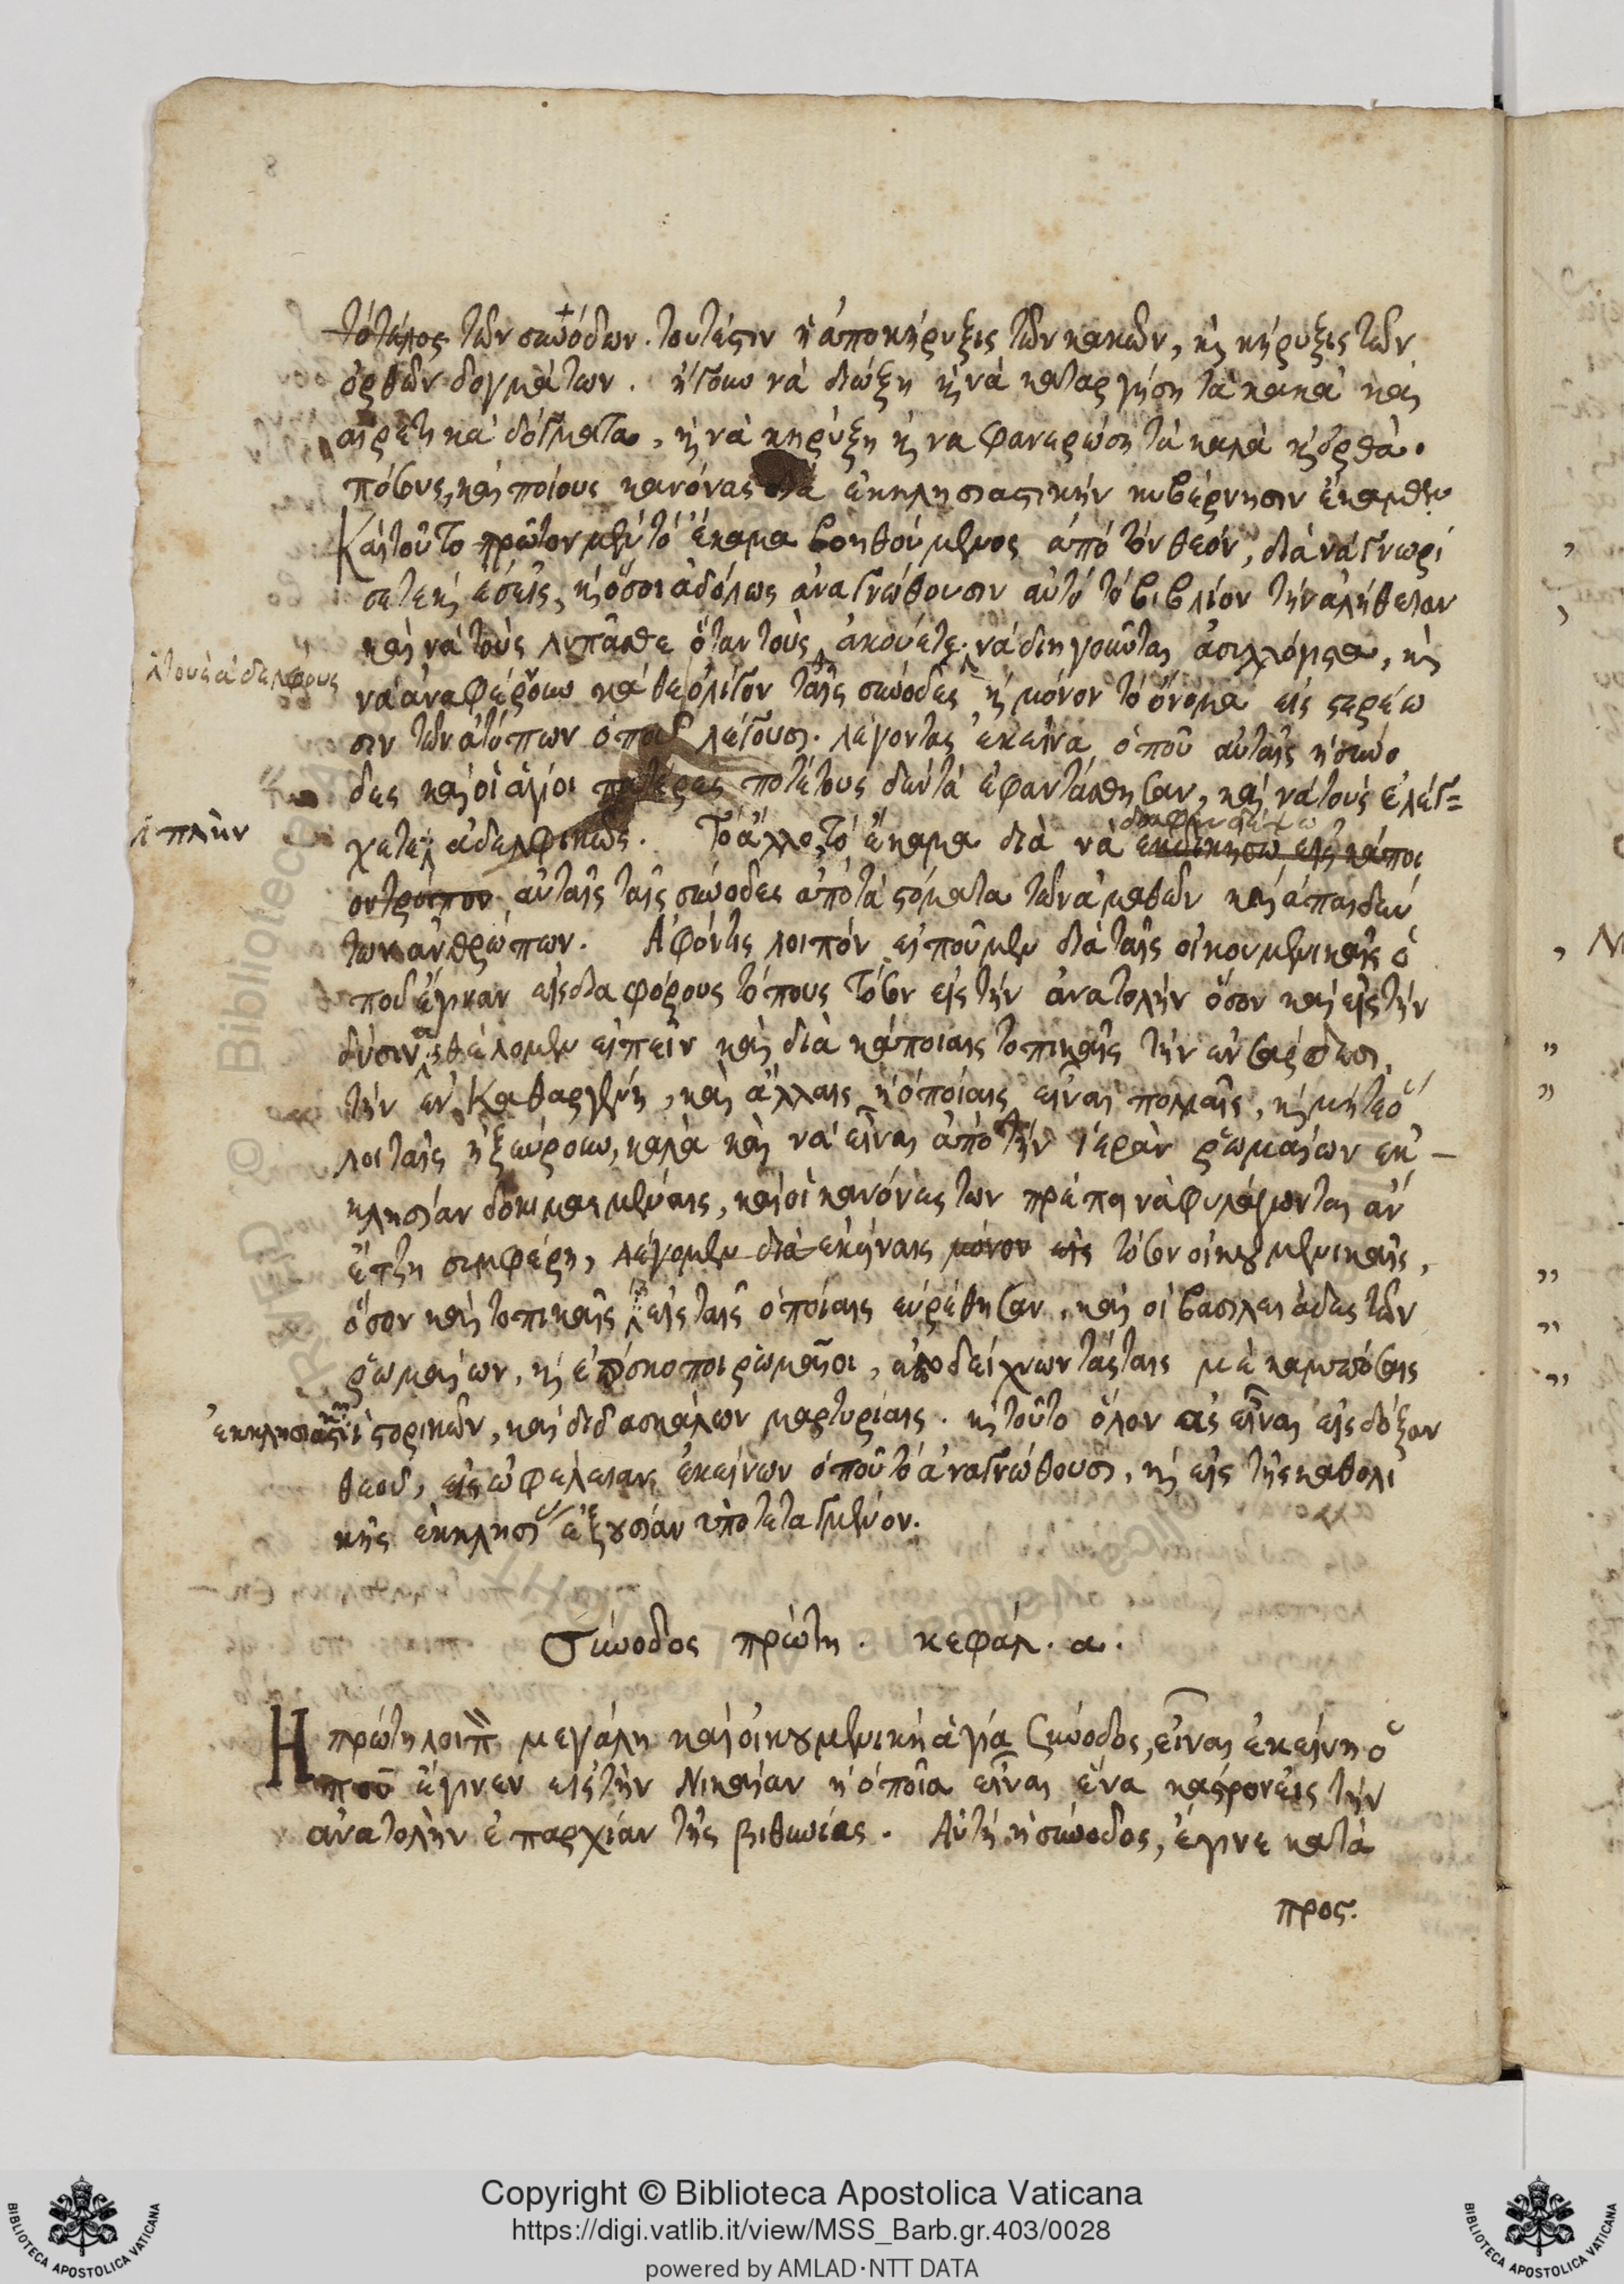 8
τὸ τέλος τῶν συνόδων. τουτέστιν ἡ ἀποκήρυξις τῶν κακῶν, κὶ κήρυξις τῶν
ὀρθῶν δογμάτων. ἤγουν νὰ διώξη κὶ νὰ καταργήση τὰ κακὰ καὶ
αἱρετικὰ δόγματα, κὶ νὰ κηρύξη κὶ να φανερώση τὰ καλὰ κὶ ὀρθὰ.
πόσους, καὶ ποίους κανόνας διὰ ἐκκλησιαστικὴν κυβέρνησιν ἔκαμεν
Καὶ τοῦτο πρῶτον μὲν τὸ ἔκαμα βοηθούμενος ἀπὸ τὸν θεόν, διὰ νὰ γνωρί
σετε κὶ ἐσεῖς, κὶ ὅσοι ἀδόλως ἀναγνώθουσιν αὐτὸ τὸ βιβλίον τὴν ἀλήθειαν
καὶ νὰ τοὺς λυπᾶσθε ὅταν τοὺς ἀκούετε νὰ διηγοῦνται ἀσυλλόγιστα, κὶ
τοὺς ἀδελφούς
νὰ ἀναφέρουν καθεόλιγον ταῖς συνόδες ἢ μόνον τὸ ὄνομα εἰς στερέω
σιν τῶν ἀτόπων ὁποῦ λέγουσι. λέγοντας ἐκεῖνα ὁποῦ αὐταῖς ἡ συνό
δες καὶ οἱ ἅγιοι πατέρες ποτέτους δὲν τὰ ἐφαντάσθησαν, καὶ νὰ τοὺς ἐλέγ=
πλὴν
χετε ἀδελφικῶς. Τὸ ἄλλο τὸ ἔκαμα διὰ νὰ ἐκδικήσω εἰς κάποι
ον τρόπον αὐταῖς ταῖς συνόδες ἀπὸ τὰ στόματα τῶν ἀμαθῶν καὶ ἀπαιδεύ
των ἀνθρώπων. Ἀφόντις λοιπόν εἰποῦμεν διὰ ταῖς οἰκουμενικαῖς ὁ
ποῦ ἔγιναν εἰς διαφόρους τόπους τόσον εἰς τὴν ἀνατολὴν ὅσον καὶ εἰς τὴν
δύσιν, θέλομεν εἰπεῖν καὶ διὰ κάποιαις τοπικαῖς τὴν ἐν σαρδέων,
τὴν ἐν Καθαργένη, καὶ ἄλλαις ἡ ὁποίαις εἶναι πολλαῖς, κὶ μήτε ὅ
λοι ταῖς ἠξεύρουν, καλὰ καὶ νὰ εἶναι ἀπὸ τὴν ἱερὰν ῥωμαίων ἐκ
κλησίαν δοκιμασμέναις, καὶ οἱ κανόνες των πρέπει νὰ φυλάγωνται ἂν
ἔτζη συμφέρη, λέγομεν διὰ ἐκείναις μόνον εἰς τόσον οἰκουμενικαῖς,
ὅσον καὶ τοπικαῖς εἰς ταῖς ὁποίαις εὑρέθησαν, καὶ οἱ βασιλειάδες τῶν
ῥωμαίων, κὶ ἐπίσκοποι ῥωμαῖοι, ἀποδείχνωντάς ταις μὲ καμπόσαις
ἐκκλησιαστικῶν ἱστορικῶν, καὶ διδασκάλων μαρτυρίαις. κὶ τοῦτο ὅλον ἂς εἶναι εἰς δόξαν
θεοῦ, εἰς ὠφέλειαν ἐκείνων ὁποῦ τὸ ἀναγνώθουσι, κὶ εἰς τῆς καθολι
κῆς ἐκκλησί ἐξουσίαν ὑποτεταγμένον.
Σύνοδος πρώτη. κεφάλ. α.
Η πρώτη λοιπ μεγάλη καὶ οἰκουμενικὴ ἁγία Σύνοδος, εἶναι ἐκείνη ὁ
ποῦ ἔγινεν εἰς τὴν Νικαίαν ἡ ὁποῖα εἶναι ἕνα κάστρον εἰς τὴν
ἀνατολὴν ἐπαρχίαν τῆς βιθυνίας. Αὐτὴ ἡ σύνοδος, ἔγινε κατὰ
προς.
Copyright © Biblioteca Apostolica Vaticana
https://digi.vatlib.it/view/MSS_Barb.gr.403/0028
powered by AMLAD·NTT DATA
BIBLIOTECA APOSTOLICA VATICANA
BIBLIOTECA APOSTOLICA VATICANA